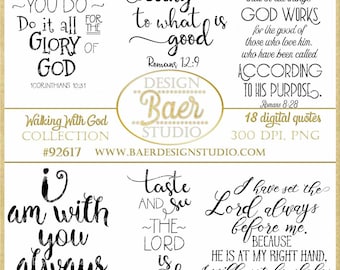 YOU DO
Do it all FOR THE
GLORY OF
GOD
1 CORINTHIANS 10:31
to what is
good
Romans 12:9
GOD WORKS
for the good of
those who love him,
who have been called
ACCORDING
TO HIS PURPOSE.
Romans 8:28
DESIGN
Baer
STUDIO
Walking With God
COLLECTION
#92617
18 digital quotes
300 DPI, PNG
WWW.BAERDESIGNSTUDIO.COM
i
am with
you
always
taste
AND see
THE
LORD
is
I have set the
Lord always
before me.
BECAUSE
HE IS AT MY RIGHT HAND,